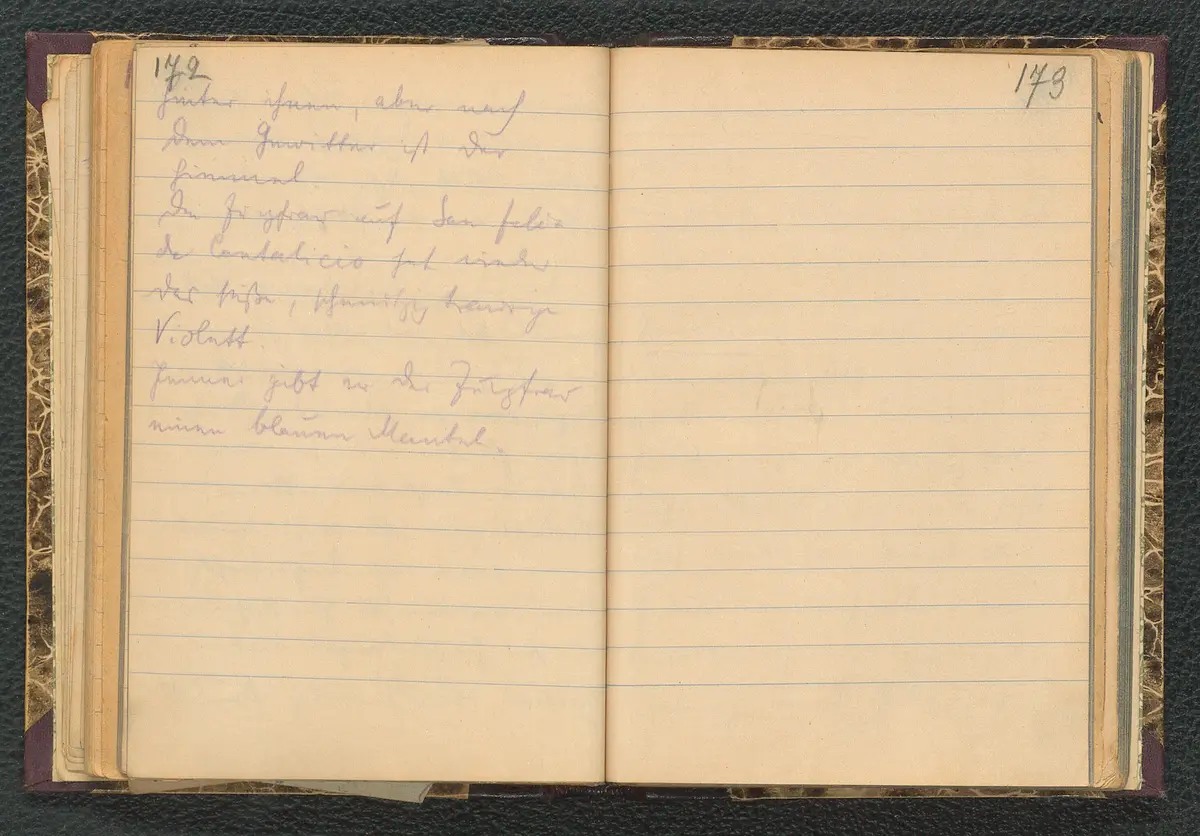 172
hinter ihnen, aber nach
dem Gewitter ist der
Himmel
Die Jungfrau auf San Felix
de Cantalicio hat wieder
das süße, schmutzig traurige
Violett.
Immer gibt er der Jungfrau
einen blauen Mantel.
173